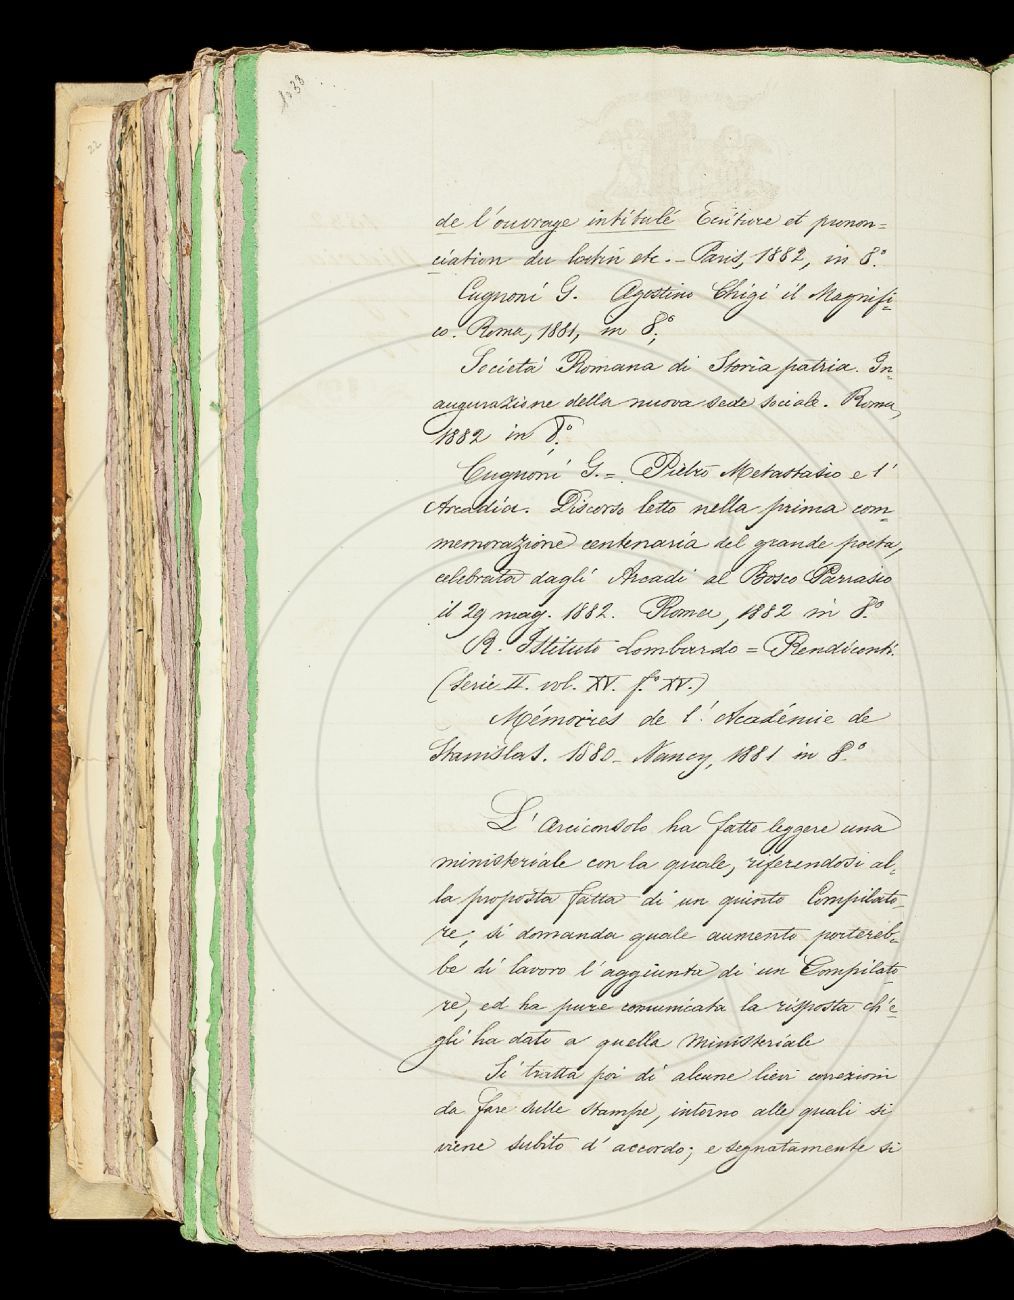 de l'ouvrage intitulé Ecriture et pronon=
ciation du latin etc. - Paris, 1882, in 8.°
Cugnoni G. Agostino Chigi il Magnifi-
co. Roma, 1881, in 8.°
Società Romana di Storia patria. In-
augurazione della nuova sede sociale. Roma,
1882 in 8.°
Cugnoni G. = Pietro Metastasio e l'
Arcadia. Discorso letto nella prima com-
memorazione centenaria del grande poeta,
celebrata dagli Arcadi al Bosco Parrasio
il 29 mag. 1882. Roma, 1882 in 8.°
R. Istituto Lombardo = Rendiconti.
(Serie II. vol. XV. f.° XV.)
Mémoires de l'Académie de
Stanislas. 1880 - Nancy, 1881 in 8.°
L'Arciconsolo ha fatto leggere una
ministeriale con la quale, riferendosi al-
la proposta fatta di un quinto Compilato-
re; si domanda quale aumento portereb-
be di lavoro l'aggiunta di un Compilato-
re, ed ha pure comunicata la risposta ch'e-
gli ha dato a quella Ministeriale
Si tratta poi di alcune lievi correzioni
da fare sulle stampe, intorno alle quali si
viene subito d'accordo; e segnatamente si